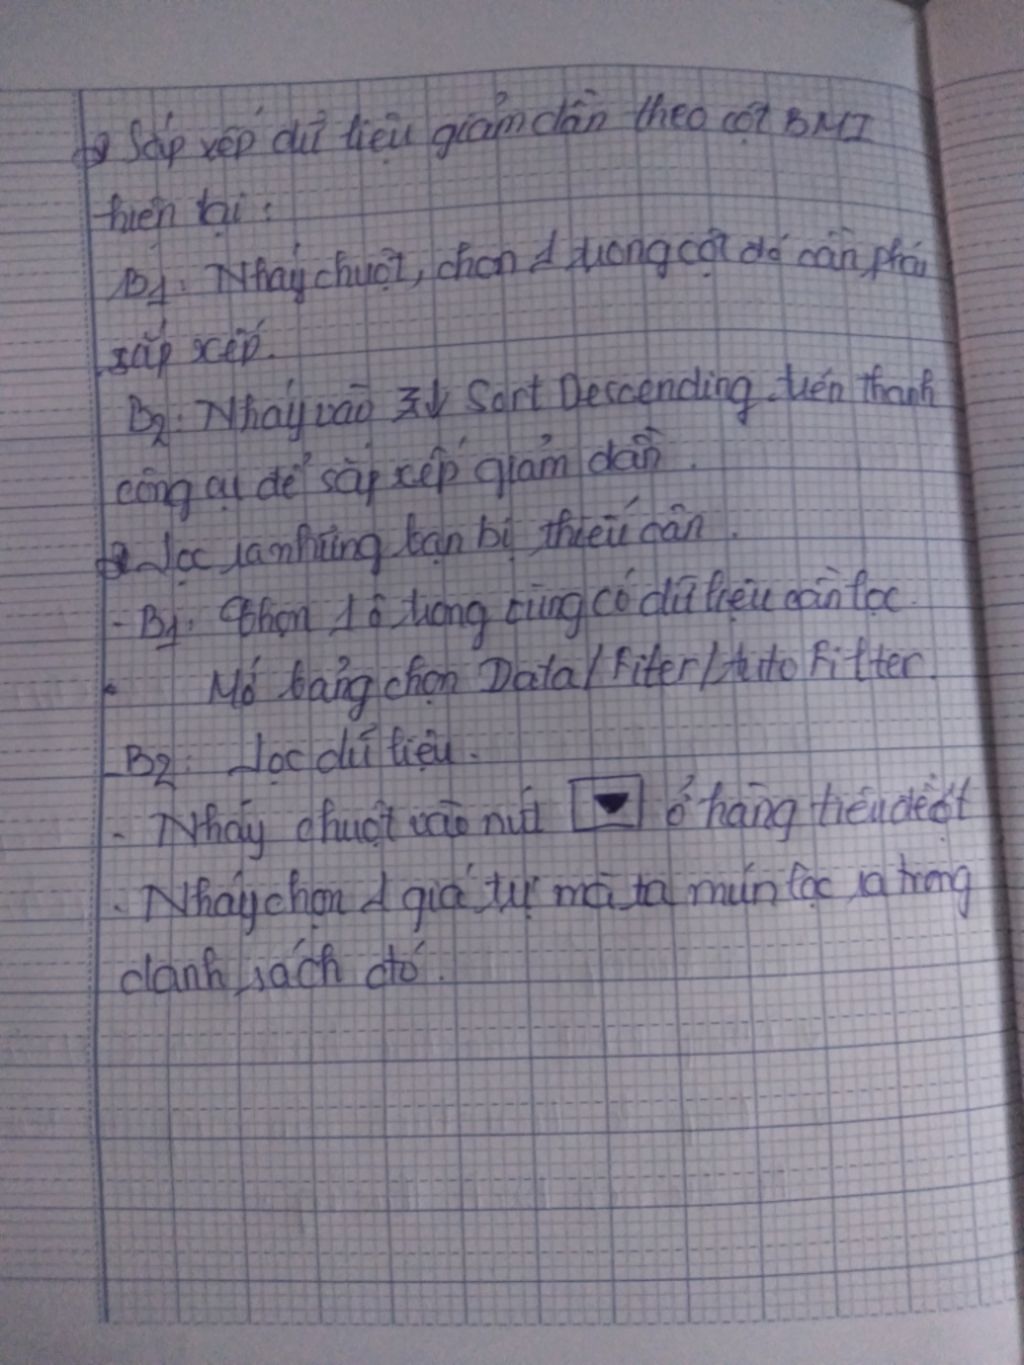 Sắp xếp dữ liệu giảm dần theo cột BMI
hiện tại :
B1: Nháy chuột, chọn 1 trong cột đó cần phải
sắp xếp.
B2: Nháy vào Z↓ Sort Descending trên thanh
công cụ để sắp xếp giảm dần.
Lọc ra những bạn bị thiếu cân.
- B1: Chọn 1 ô trong vùng có dữ liệu cần lọc.
Mở bảng chọn Data/Fiter/Auto Filter.
B2: Lọc dữ liệu.
- Nháy chuột vào nút ▼ ở hàng tiêu đề cột
- Nháy chọn 1 giá trị mà ta mún lọc ra trong
danh sách đó.